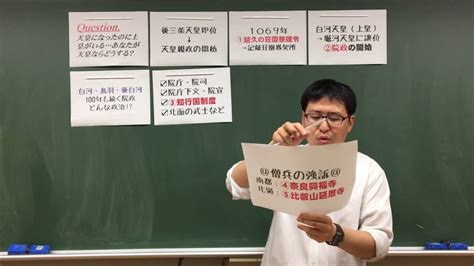 Question.
天皇になったのに上
皇がいる…あなたが
天皇ならどうする？
後三条天皇即位
↓
天皇親政の開始
1069年
①延久の荘園整理令
→記録荘園券契所
白河天皇（上皇）
→堀河天皇に譲位
②院政の開始
白河・鳥羽・後白河
100年も続く院政
どんな政治!？
☑院庁・院司
☑院庁下文・院宣
☑③知行国制度
☑北面の武士など
@僧兵の強訴@
南都：④奈良興福寺
北嶺：⑤比叡山延暦寺